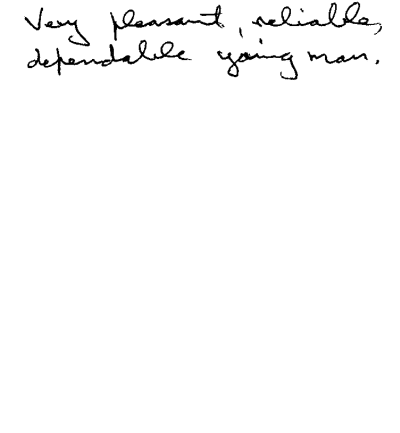 Very pleasant, reliable,
dependable young man.